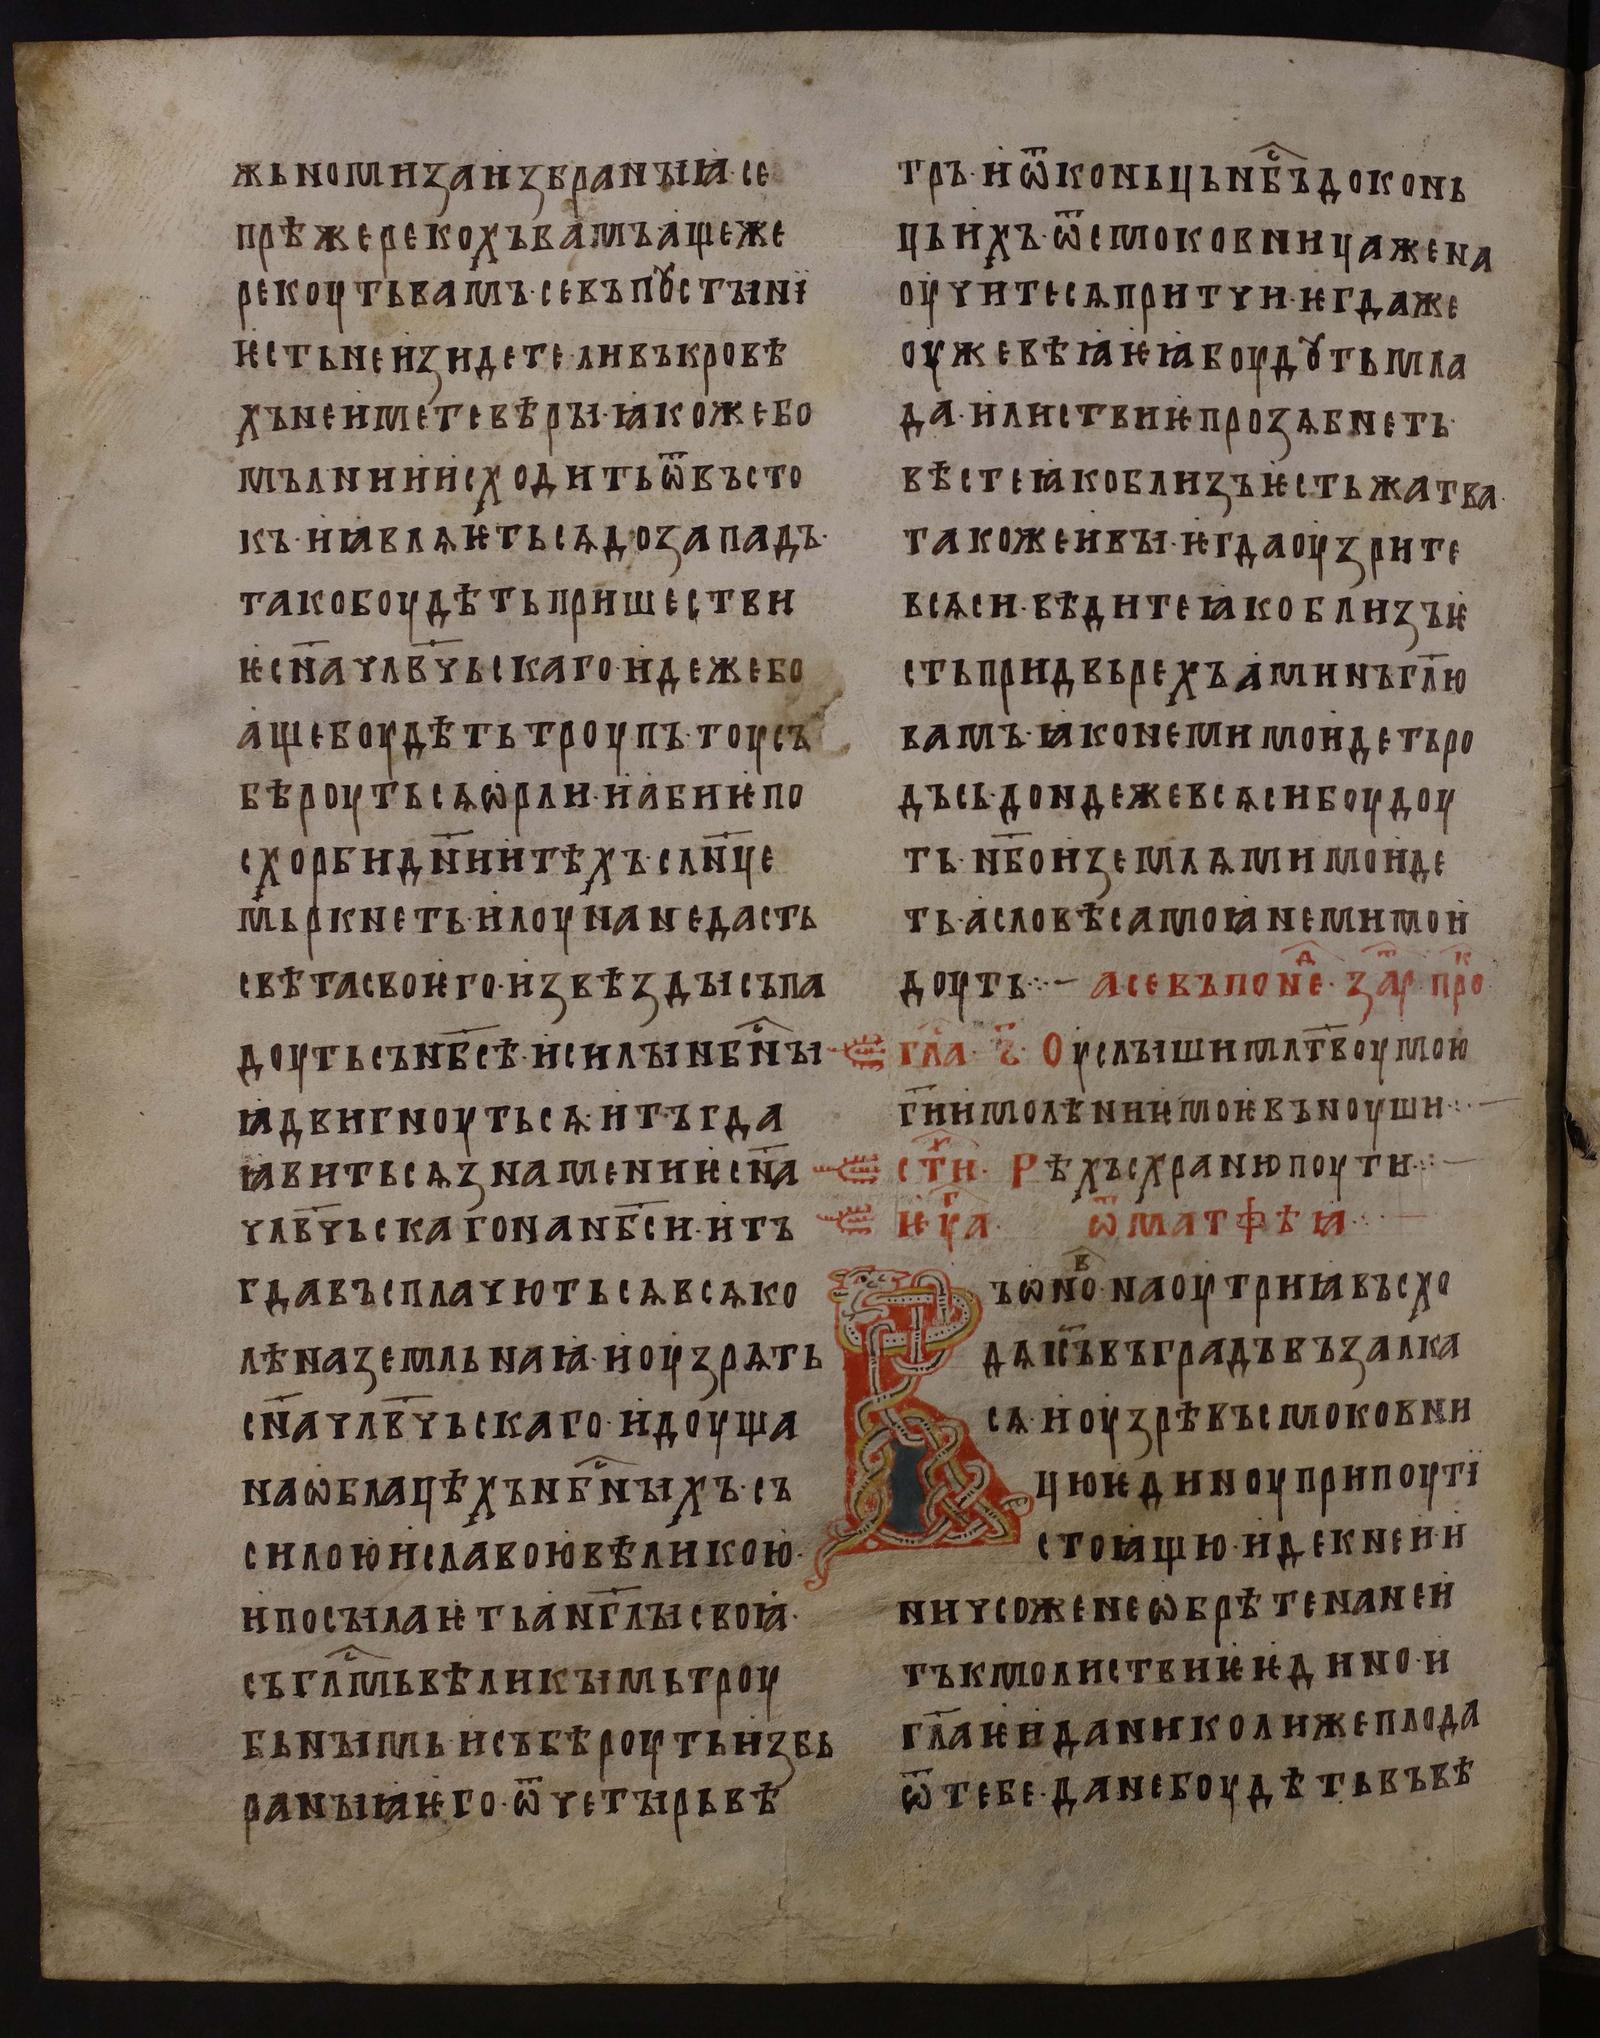 жьномизаизбраныꙗ·се
прѣжерекохъвамъ·ащеже
рекоуть вамъ·севъпꙋстыні
ѥстьнеизидете·ливъкровѣ
хънеиметевѣры·ꙗкожебо
мълниисходитьѿвъсто
къ·иꙗвлѧѥтьсѧдозападъ·
такобоудѣтьпришестви
ѥсн҃ачлв҃чьскаго·идежебо
ащебоудѣтьтроупъ·тоусъ
бѣроутьсѧѡрли·иабиѥпо
схорбидн҃иитѣхъ·слн҃це
мьркнеть·илоунанедасть
свѣтасвоѥго·извѣздысъпа
доутьсънб҃сѣ·исилынбⷭ҇ны
ꙗдвигноутьсѧ·итъгда
ꙗвитьсѧзнамениѥсн҃а
члв҃чьскагонанб҃си·итъ
гдавъсплачютьсѧвсѧко
лѣназемльнаꙗ·иоузрѧть
сн҃ачлв҃чьскаго·идоуща
наѡблацѣхънбⷭ҇ныхъ·съ
силоюиславоювѣликою·
ипосылаѥтьанг҃лысвоꙗ·
съглⷭ҇мьвѣликымьтроу
бьнымь·исъбѣроутьизбь
раныꙗѥго·ѿчетырьвѣ
тръ·иѿконьцьнбⷭ҇ъдоконь
цьихъ·ѿсмоковницажена
оучитесѧпритчи·ѥгдаже
оужевѣꙗѥꙗбоудꙋтьмла
да·илиствиѥпрозѧбнеть·
вѣстеꙗкоблизъѥстьжатва·
такожеивы·ѥгдаоузрите
всѧси·вѣдитеꙗкоблизъѥ
стьпридвьрехъаминъгл҃ю
вамъ·ꙗконемимоидетьро
дъсь·дондежевсѧсибоудоу
ть·нб҃оиземлѧмимоиде
ть·асловѣсамоꙗнемимои
доуть·:·– асевъпонеⷣ·заⷬ·проⷦ
гл҃а·з҃·Оуслышимлт҃воумою
гн҃имолѣниѥмоѥвъноуши·:·–
стиⷯ·Рѣхъсхранюпоути·:·–
ѥуⷢ҇а· ѿматфѣꙗ·:·–
ъѡноⷡ·наоутриꙗвъсхо
дѧіс҃ъвъградъвъзалка
сѧ·иоузрѣвъсмоковни
цюѥдиноуприпоуті
стоꙗщю·идекнеи·и
ничсоженеѡбрѣтенанеи
тъкмолиствиѥѥдино·и
гл҃аѥиданиколижеплода
ѿтебе·данебоудѣтьвъвѣ